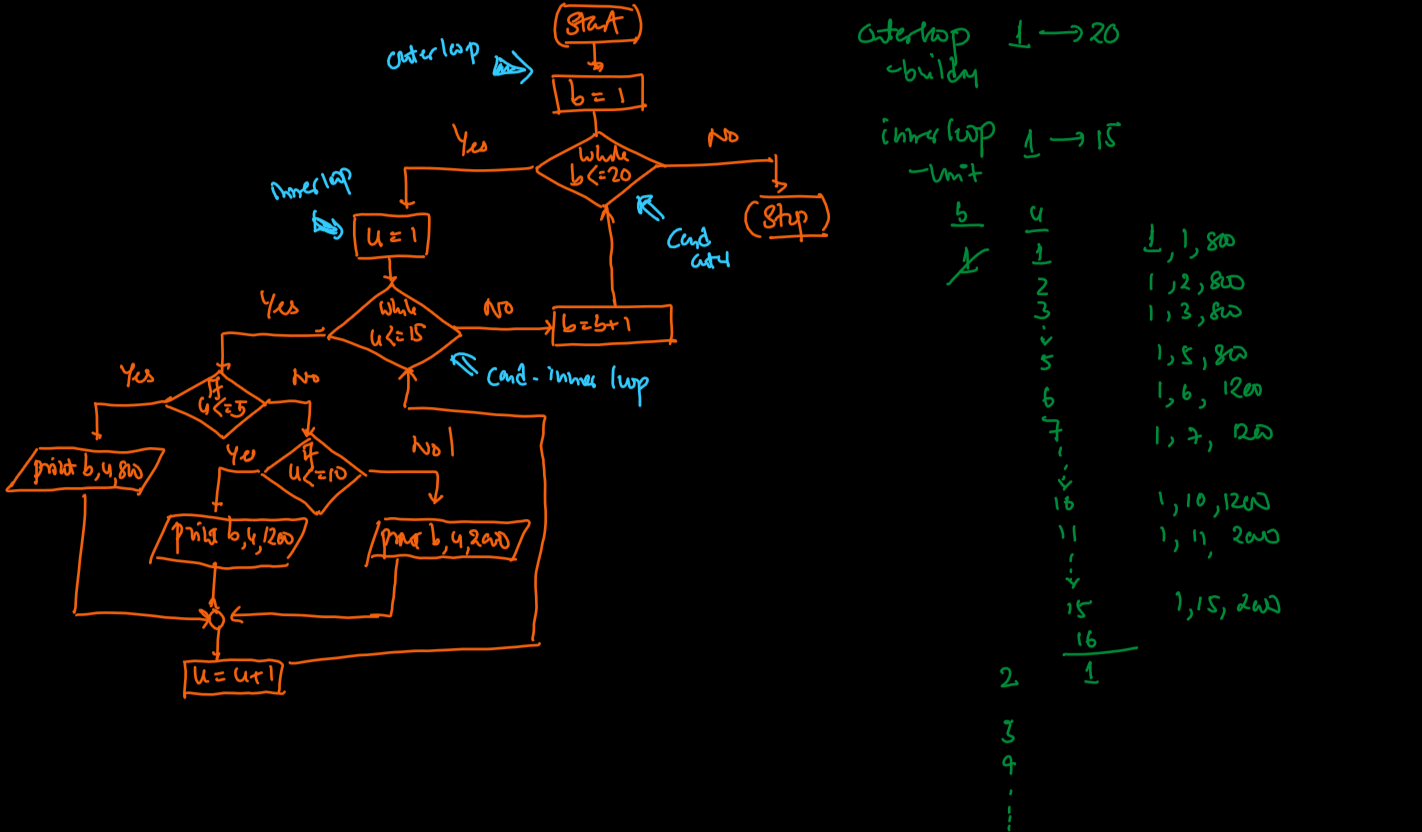 Start
outer loop
b = 1
Yes
While
b <= 20
No
Stop
inner loop
u = 1
Cond
Yes
While
u <= 15
No
b = b + 1
Cond - inner loop
Yes
If
u <= 5
No
print b, u, 800
Yes
If
u <= 10
No
print b, u, 1200
print b, u, 2000
u = u + 1
outer loop 1 → 20
- building
inner loop 1 → 15
- Unit
b u
1 1 1, 1, 800
2 1, 2, 800
3 1, 3, 800
5 1, 5, 800
6 1, 6, 1200
7 1, 7, 1200
10 1, 10, 1200
11 1, 11, 2000
15 1, 15, 2000
16
2 1
3
4